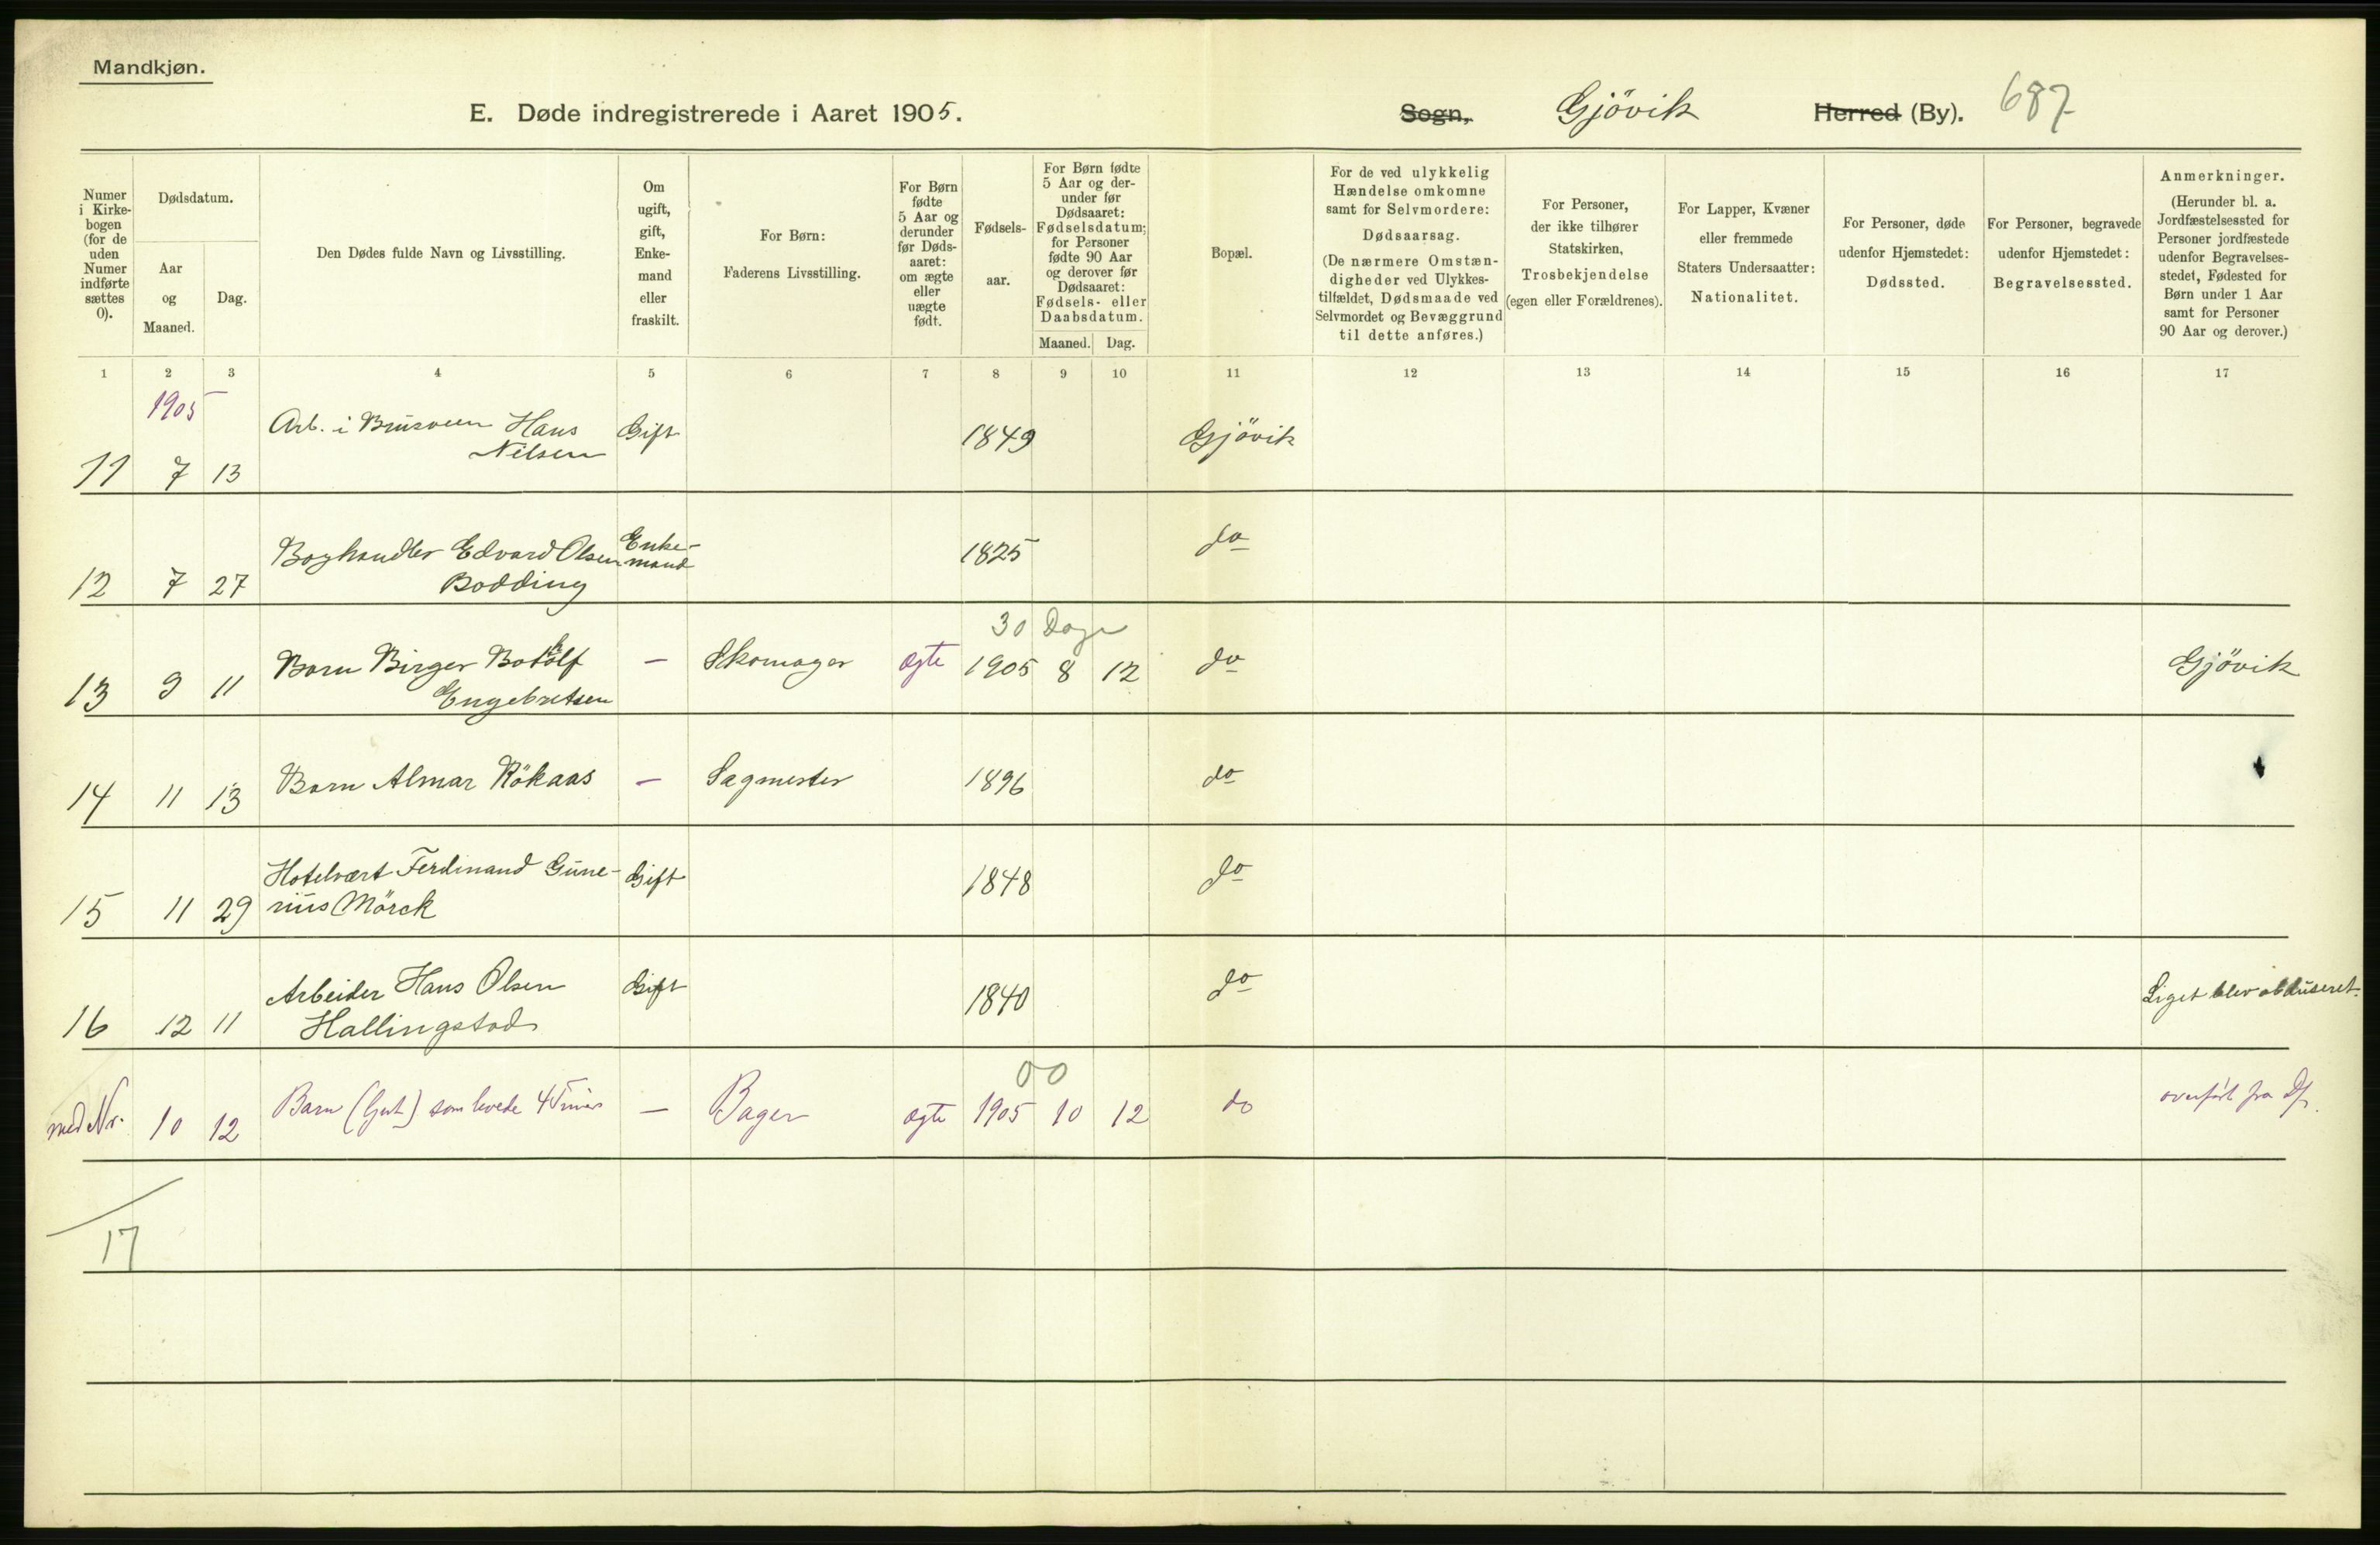 Mandkjøn.
E. Døde indregistrerede i Aaret 1905.
Sogn, Gjövik Herred (By). 687
Numer
i Kirke-
bogen
(for de
uden
Numer
indførte
sættes
0).
Dødsdatum.
Aar
og
Maaned.
Dag.
Den Dødes fulde Navn og Livsstilling.
Om
ugift,
gift,
Enke-
mand
eller
fraskilt.
For Børn:
Faderens Livsstilling.
For Børn
fødte
5 Aar og
derunder
før Døds-
aaret:
om ægte
eller
uægte
født.
Fødsels-
aar.
For Børn fødte
5 Aar og der-
under før
Dødsaaret:
Fødselsdatum;
for Personer
fødte 90 Aar
og derover før
Dødsaaret:
Fødsels- eller
Daabsdatum.
Maaned. Dag.
Bopæl.
For de ved ulykkelig
Hændelse omkomne
samt for Selvmordere:
Dødsaarsag.
(De nærmere Omstæn-
digheder ved Ulykkes-
tilfældet, Dødsmaade ved
Selvmordet og Bevæggrund
til dette anføres.)
For Personer,
der ikke tilhører
Statskirken,
Trosbekjendelse
(egen eller Forældrenes).
For Lapper, Kvæner
eller fremmede
Staters Undersaatter:
Nationalitet.
For Personer, døde
udenfor Hjemstedet:
Dødssted.
For Personer, begravede
udenfor Hjemstedet:
Begravelsessted.
Anmerkninger.
(Herunder bl. a.
Jordfæstelsessted for
Personer jordfæstede
udenfor Begravelses-
stedet, Fødested for
Børn under 1 Aar
samt for Personer
90 Aar og derover.)
1 2 3 4 5 6 7 8 9 10 11 12 13 14 15 16 17
1905
11 7 13 Arb. i Brusveen Hans Gift 1849 Gjövik
Nilsen
12 7 27 Boghandler Edvard Olsen Enke- 1825 do
Bodding mand
30 Dage
13 9 11 Barn Birger Botolf — Skomager ægte 1905 8 12 do Gjövik
Engebretsen
14 11 13 Barn Almar Rökaas — Sagmester 1896 do
15 11 29 Hotelvært Ferdinand Gune- Gift 1848 do
rius Mörck
16 12 11 Arbeider Hans Olsen Gift 1840 do Liget blev obduseret.
Hallingstad
00
med Nr. 10 12 Barn (Gut) som levede 4 Timer — Bager ægte 1905 10 12 do overfört fra
17